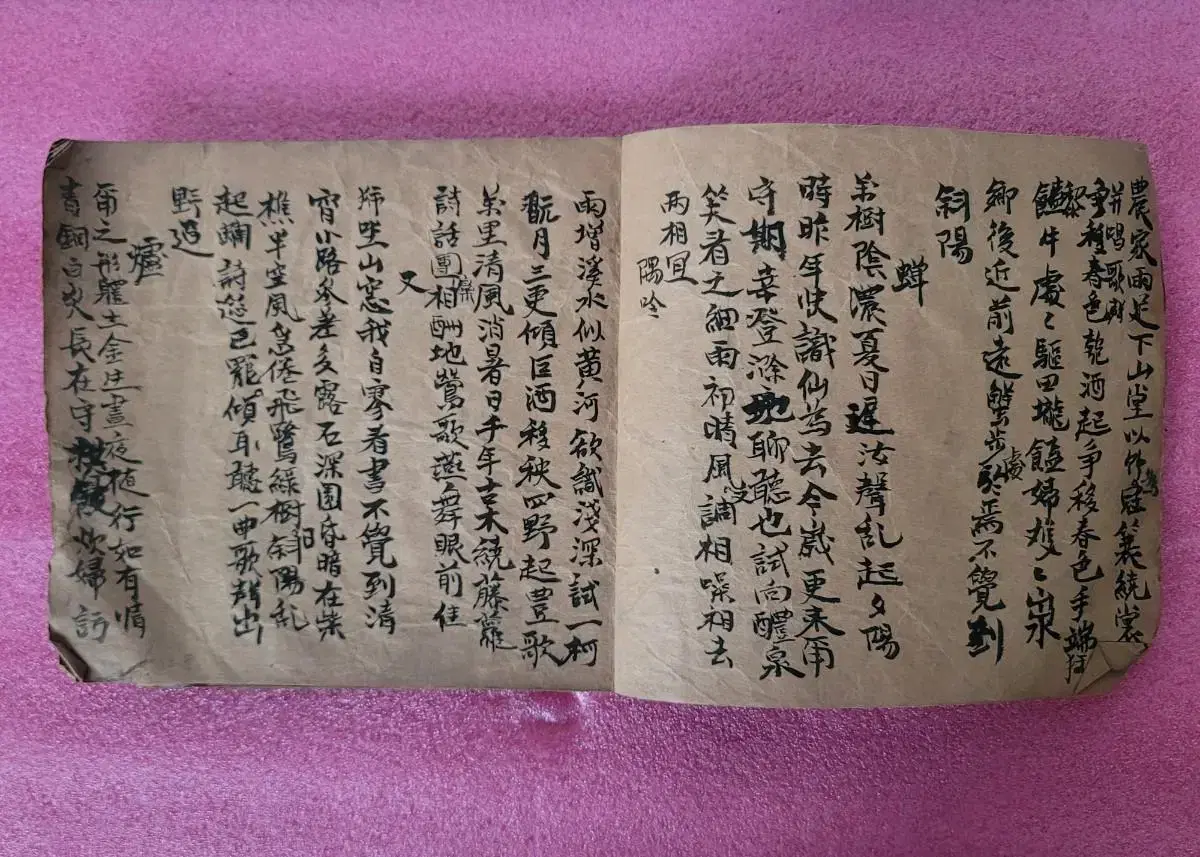 農家雨足下山堂以竹冠簑繞裳
并唱歌
爭種春色乾酒起爭移春色手端
饁牛處〻驅田壠饁婦雙〻泉
鄉後近前遠蟹步馬不覺到
斜陽
蟬
萬樹陰濃夏日遲汝聲乱起夕陽
時昨年快識仙為去今歲更來甭
守期幸登滁地聊聽也試向醴泉
笑者之細雨初晴風調相噪相去
兩相宜
隅吟
雨增溪水似黃河欲識淺深試一柯
翫月三更傾巨酒移秧四野起豊歌
萬里清風消暑日千年古木繞藤蘿
詩話團相酬地鶯歌燕舞眼前佳
又
歸坐山窓我自寥看書不覺到清
宵小路參差多露石深園昏暗在柴
樵半空風急倦飛鷺綠樹斜陽乱
起蜩詩筵已罷傾耳聽一曲歌聲出
野迢
爐
甭之形體土金生晝夜随行如有情
青銅白火長在守 炊婦